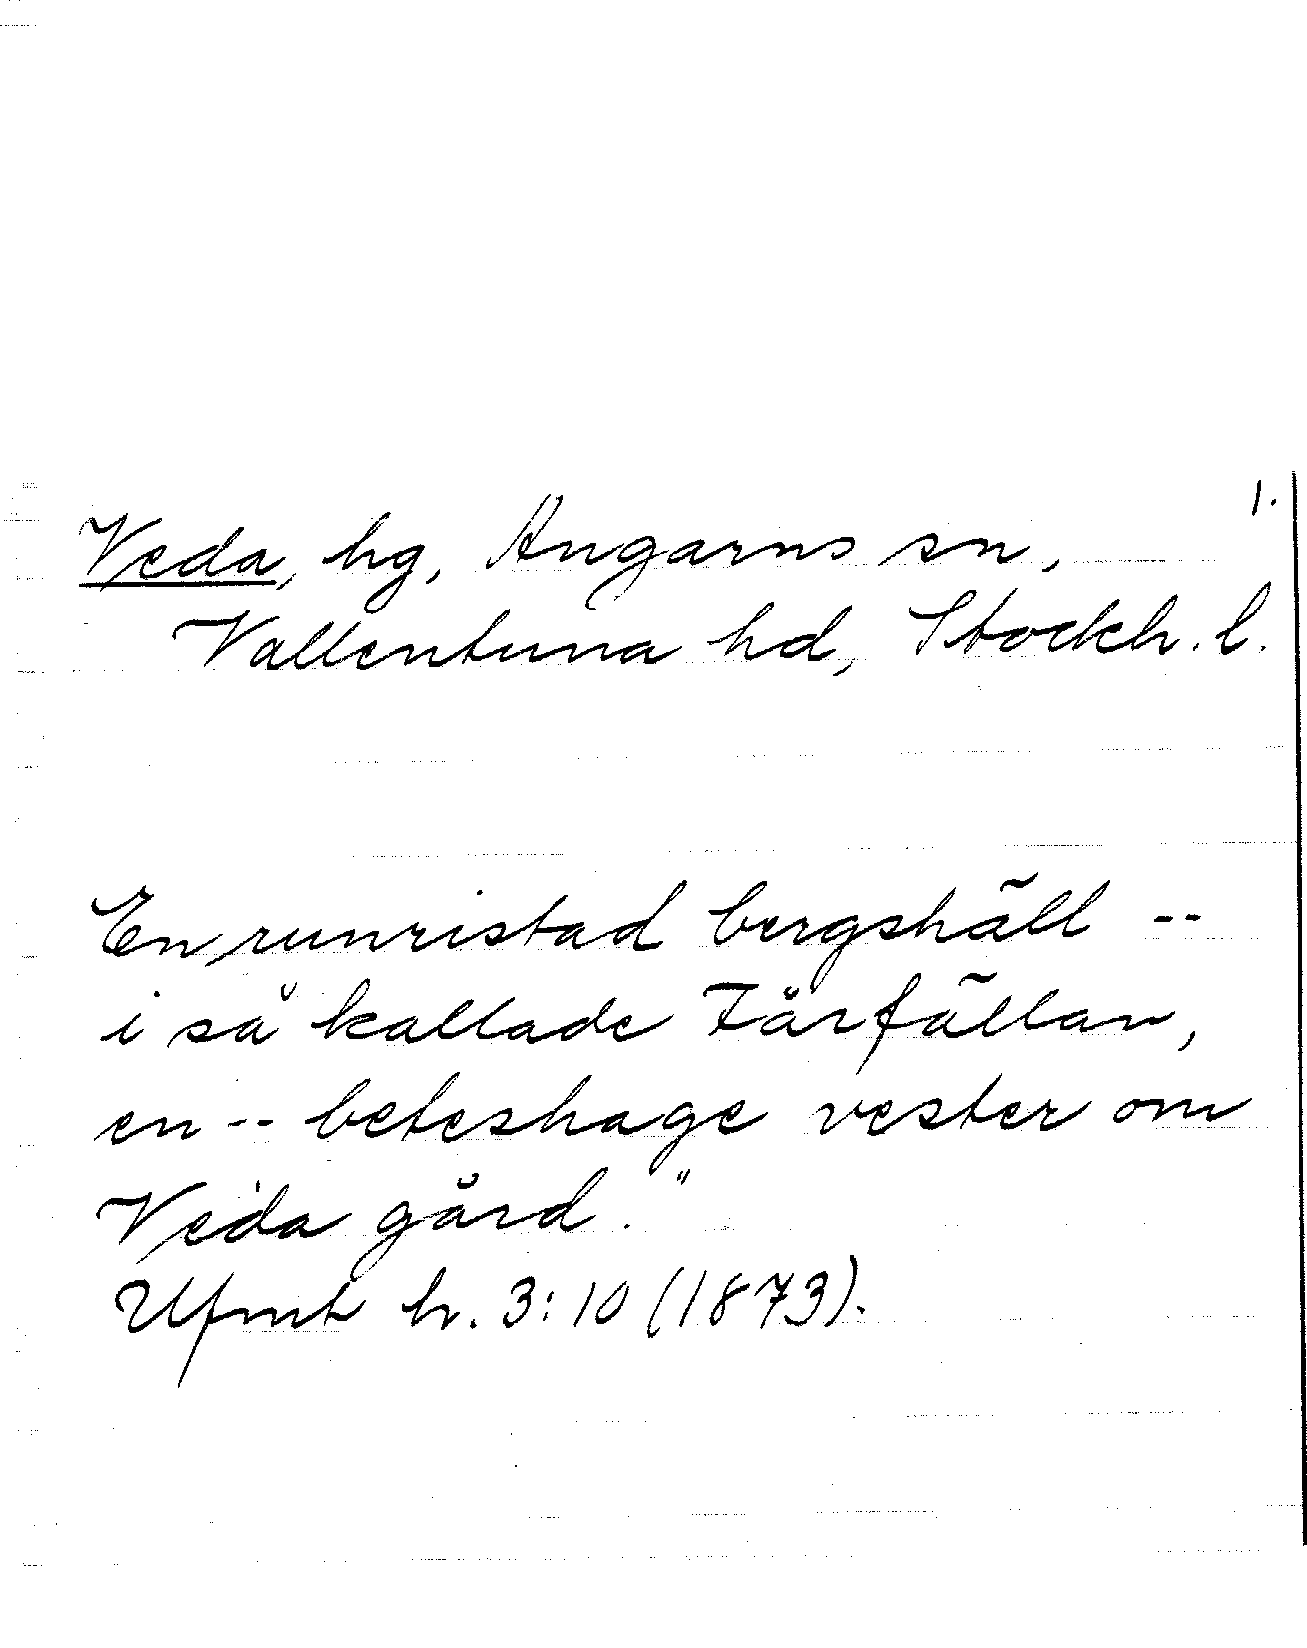 1.
Veda, hg, Angarns sn,
Vallentuna hd, Stockh. l.
En runristad bergshäll --
i så kallade Fårfällan,
en -- beteshage vester om
Veda gård."
Ufmt h. 3:10 (1873).